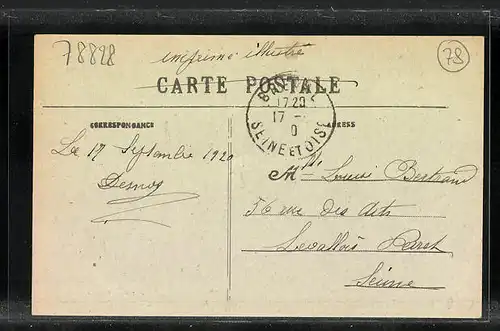 78828
imprimé illustré
78
CARTE POSTALE
17 20
17 -
0
SEINE ET OISE
CORRESPONDANCE
Le 17 Septembre 1920
Desnos
M. Louis Bertrand
56 rue des Arts
Levallois Perret
Seine